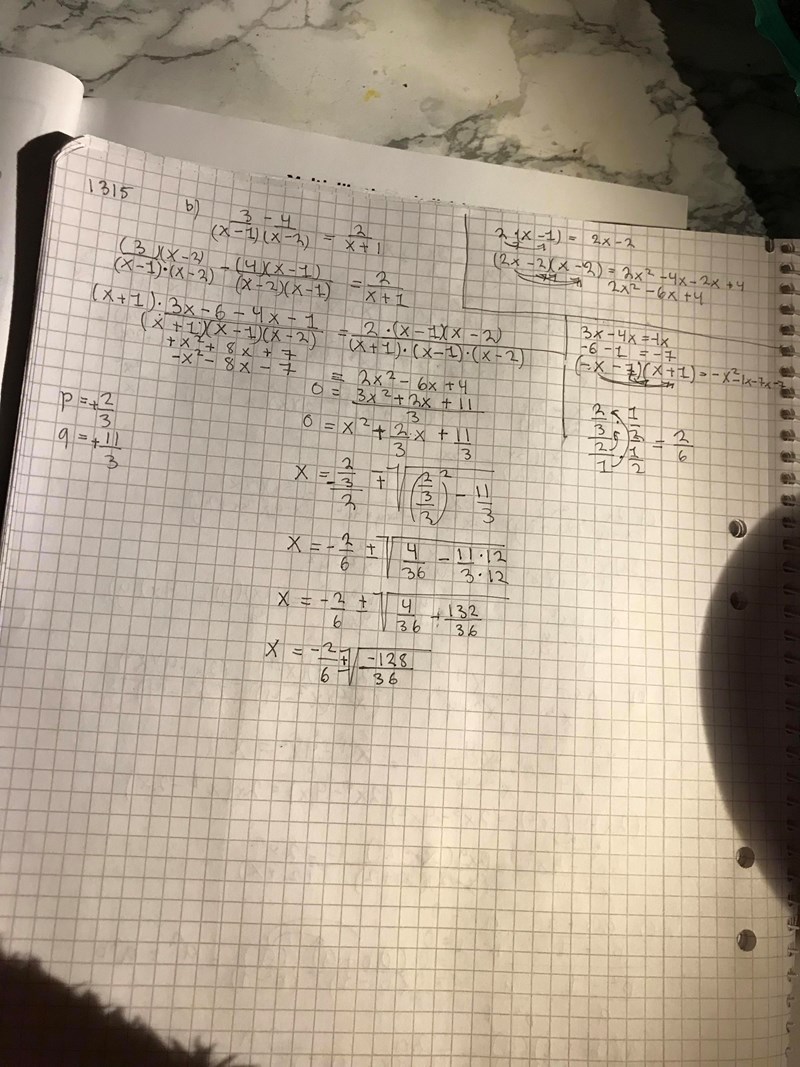 1315 b) 3 - 4 / (x-1)(x-2) = 2 / x+1
(3)(x-2) / (x-1)·(x-2) - (4)(x-1) / (x-2)(x-1) = 2 / x+1
(x+1)·3x-6-4x-1 / (x+1)(x-1)(x-2) = 2·(x-1)(x-2) / (x+1)·(x-1)·(x-2)
+x²+8x+7
-x²-8x-7 = 2x²-6x+4
0 = 3x²+2x+11 / 3
0 = x² + 2/3 x + 11/3
p = +2/3
q = +11/3
x = -2/3/2 ± √(2/3/2)² - 11/3
x = -2/6 ± √4/36 - 11·12/3·12
x = -2/6 ± √4/36 + 132/36
x = -2/6 ± √-128/36
2(x-1) = 2x-2
(2x-2)(x-2) = 2x²-4x-2x+4
2x²-6x+4
3x-4x=-1x
-6-1 = -7
(-x-7)(x+1) = -x²-1x-7x-7
2/3·1/2 / 2/1·1/2 = 2/6